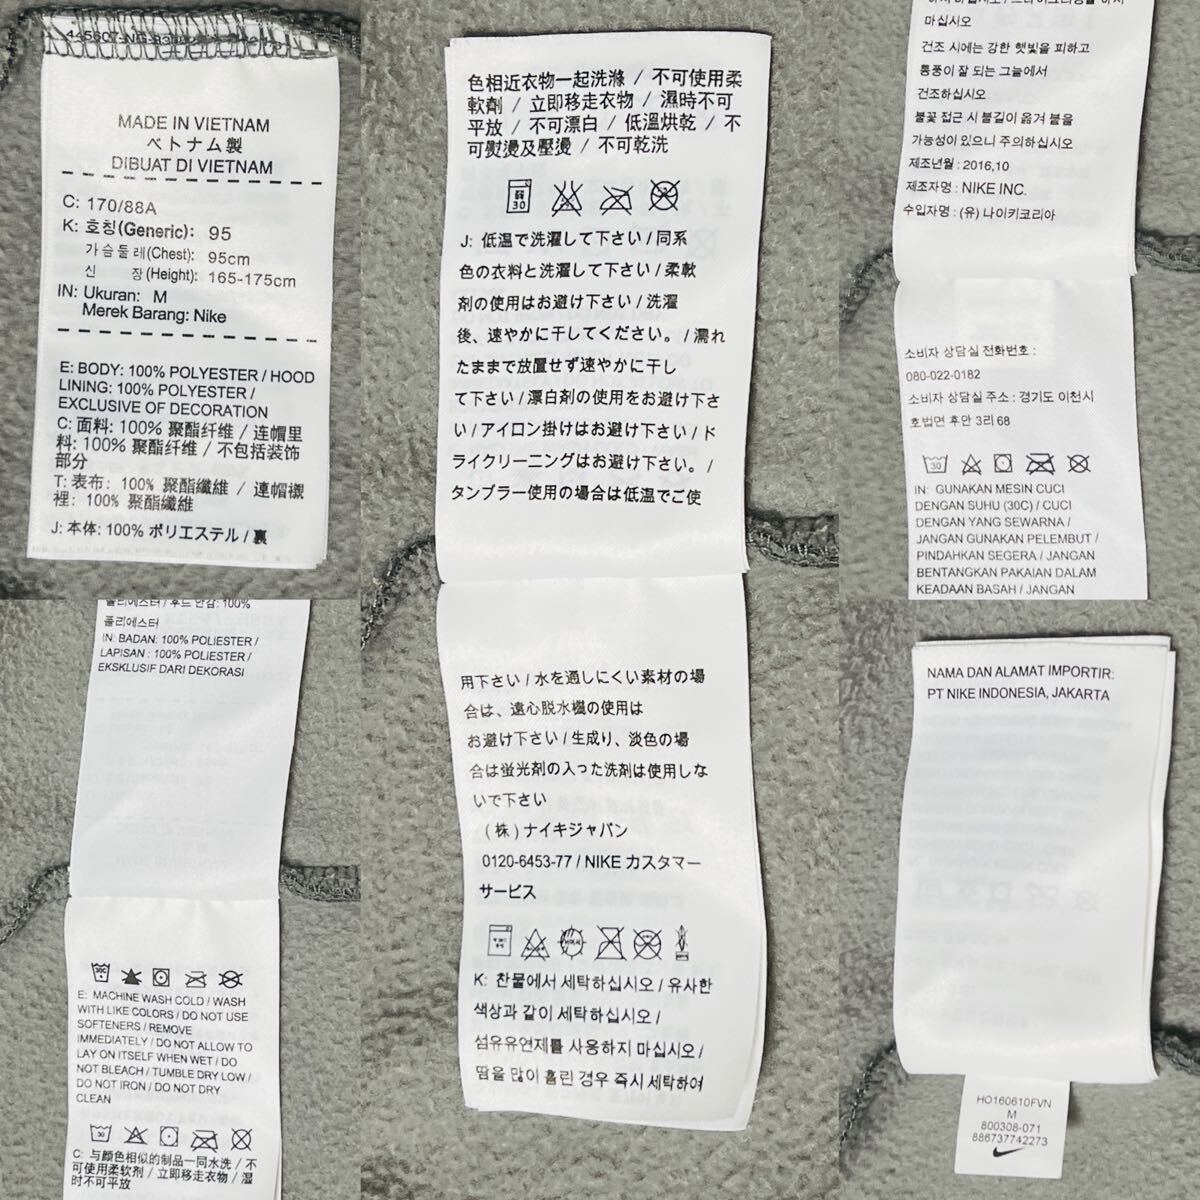 MADE IN VIETNAM
ベトナム製
DIBUAT DI VIETNAM
C: 170/88A
K: 호칭(Generic): 95
가슴둘레(Chest): 95cm
신 장(Height): 165-175cm
IN: Ukuran: M
Merek Barang: Nike
E: BODY: 100% POLYESTER / HOOD
LINING: 100% POLYESTER /
EXCLUSIVE OF DECORATION
C: 面料: 100% 聚酯纤维 / 连帽里
料: 100% 聚酯纤维 / 不包括装饰
部分
T: 表布: 100% 聚酯纖維 / 連帽襯
裡: 100% 聚酯纖維
J: 本体: 100% ポリエステル / 裏
폴리에스터 / 후드 안감: 100%
폴리에스터
IN: BADAN: 100% POLIESTER /
LAPISAN : 100% POLIESTER /
EKSKLUSIF DARI DEKORASI
E: MACHINE WASH COLD / WASH
WITH LIKE COLORS / DO NOT USE
SOFTENERS / REMOVE
IMMEDIATELY / DO NOT ALLOW TO
LAY ON ITSELF WHEN WET / DO
NOT BLEACH / TUMBLE DRY LOW /
DO NOT IRON / DO NOT DRY
CLEAN
30
C: 与颜色相似的制品一同水洗 / 不
可使用柔软剂 / 立即移走衣物 / 湿
时不可平放
色相近衣物一起洗滌 / 不可使用柔
軟劑 / 立即移走衣物 / 濕時不可
平放 / 不可漂白 / 低溫烘乾 / 不
可熨燙及壓燙 / 不可乾洗
30
J: 低温で洗濯して下さい / 同系
色の衣料と洗濯して下さい / 柔軟
剤の使用はお避け下さい / 洗濯
後、速やかに干してください。 / 濡れ
たままで放置せず速やかに干し
て下さい / 漂白剤の使用をお避け下さ
い / アイロン掛けはお避け下さい / ド
ライクリーニングはお避け下さい。 /
タンブラー使用の場合は低温でご使
用下さい / 水を通しにくい素材の場
合は、遠心脱水機の使用は
お避け下さい / 生成り、淡色の場
合は蛍光剤の入った洗剤は使用しな
いで下さい
(株) ナイキジャパン
0120-6453-77 / NIKE カスタマー
サービス
K: 찬물에서 세탁하십시오 / 유사한
색상과 같이 세탁하십시오 /
섬유유연제를 사용하지 마십시오 /
땀을 많이 흘린 경우 즉시 세탁하여
마십시오
건조 시에는 강한 햇빛을 피하고
통풍이 잘 되는 그늘에서
건조하십시오
불꽃 접근 시 불길이 옮겨 붙을
가능성이 있으니 주의하십시오
제조년월 : 2016,10
제조자명 : NIKE INC.
수입자명 : (유) 나이키코리아
소비자 상담실 전화번호 :
080-022-0182
소비자 상담실 주소 : 경기도 이천시
호법면 후안 3리 68
30
IN: GUNAKAN MESIN CUCI
DENGAN SUHU (30C) / CUCI
DENGAN YANG SEWARNA /
JANGAN GUNAKAN PELEMBUT /
PINDAHKAN SEGERA / JANGAN
BENTANGKAN PAKAIAN DALAM
KEADAAN BASAH / JANGAN
NAMA DAN ALAMAT IMPORTIR:
PT NIKE INDONESIA, JAKARTA
HO160610FVN
M
800308-071
886737742273